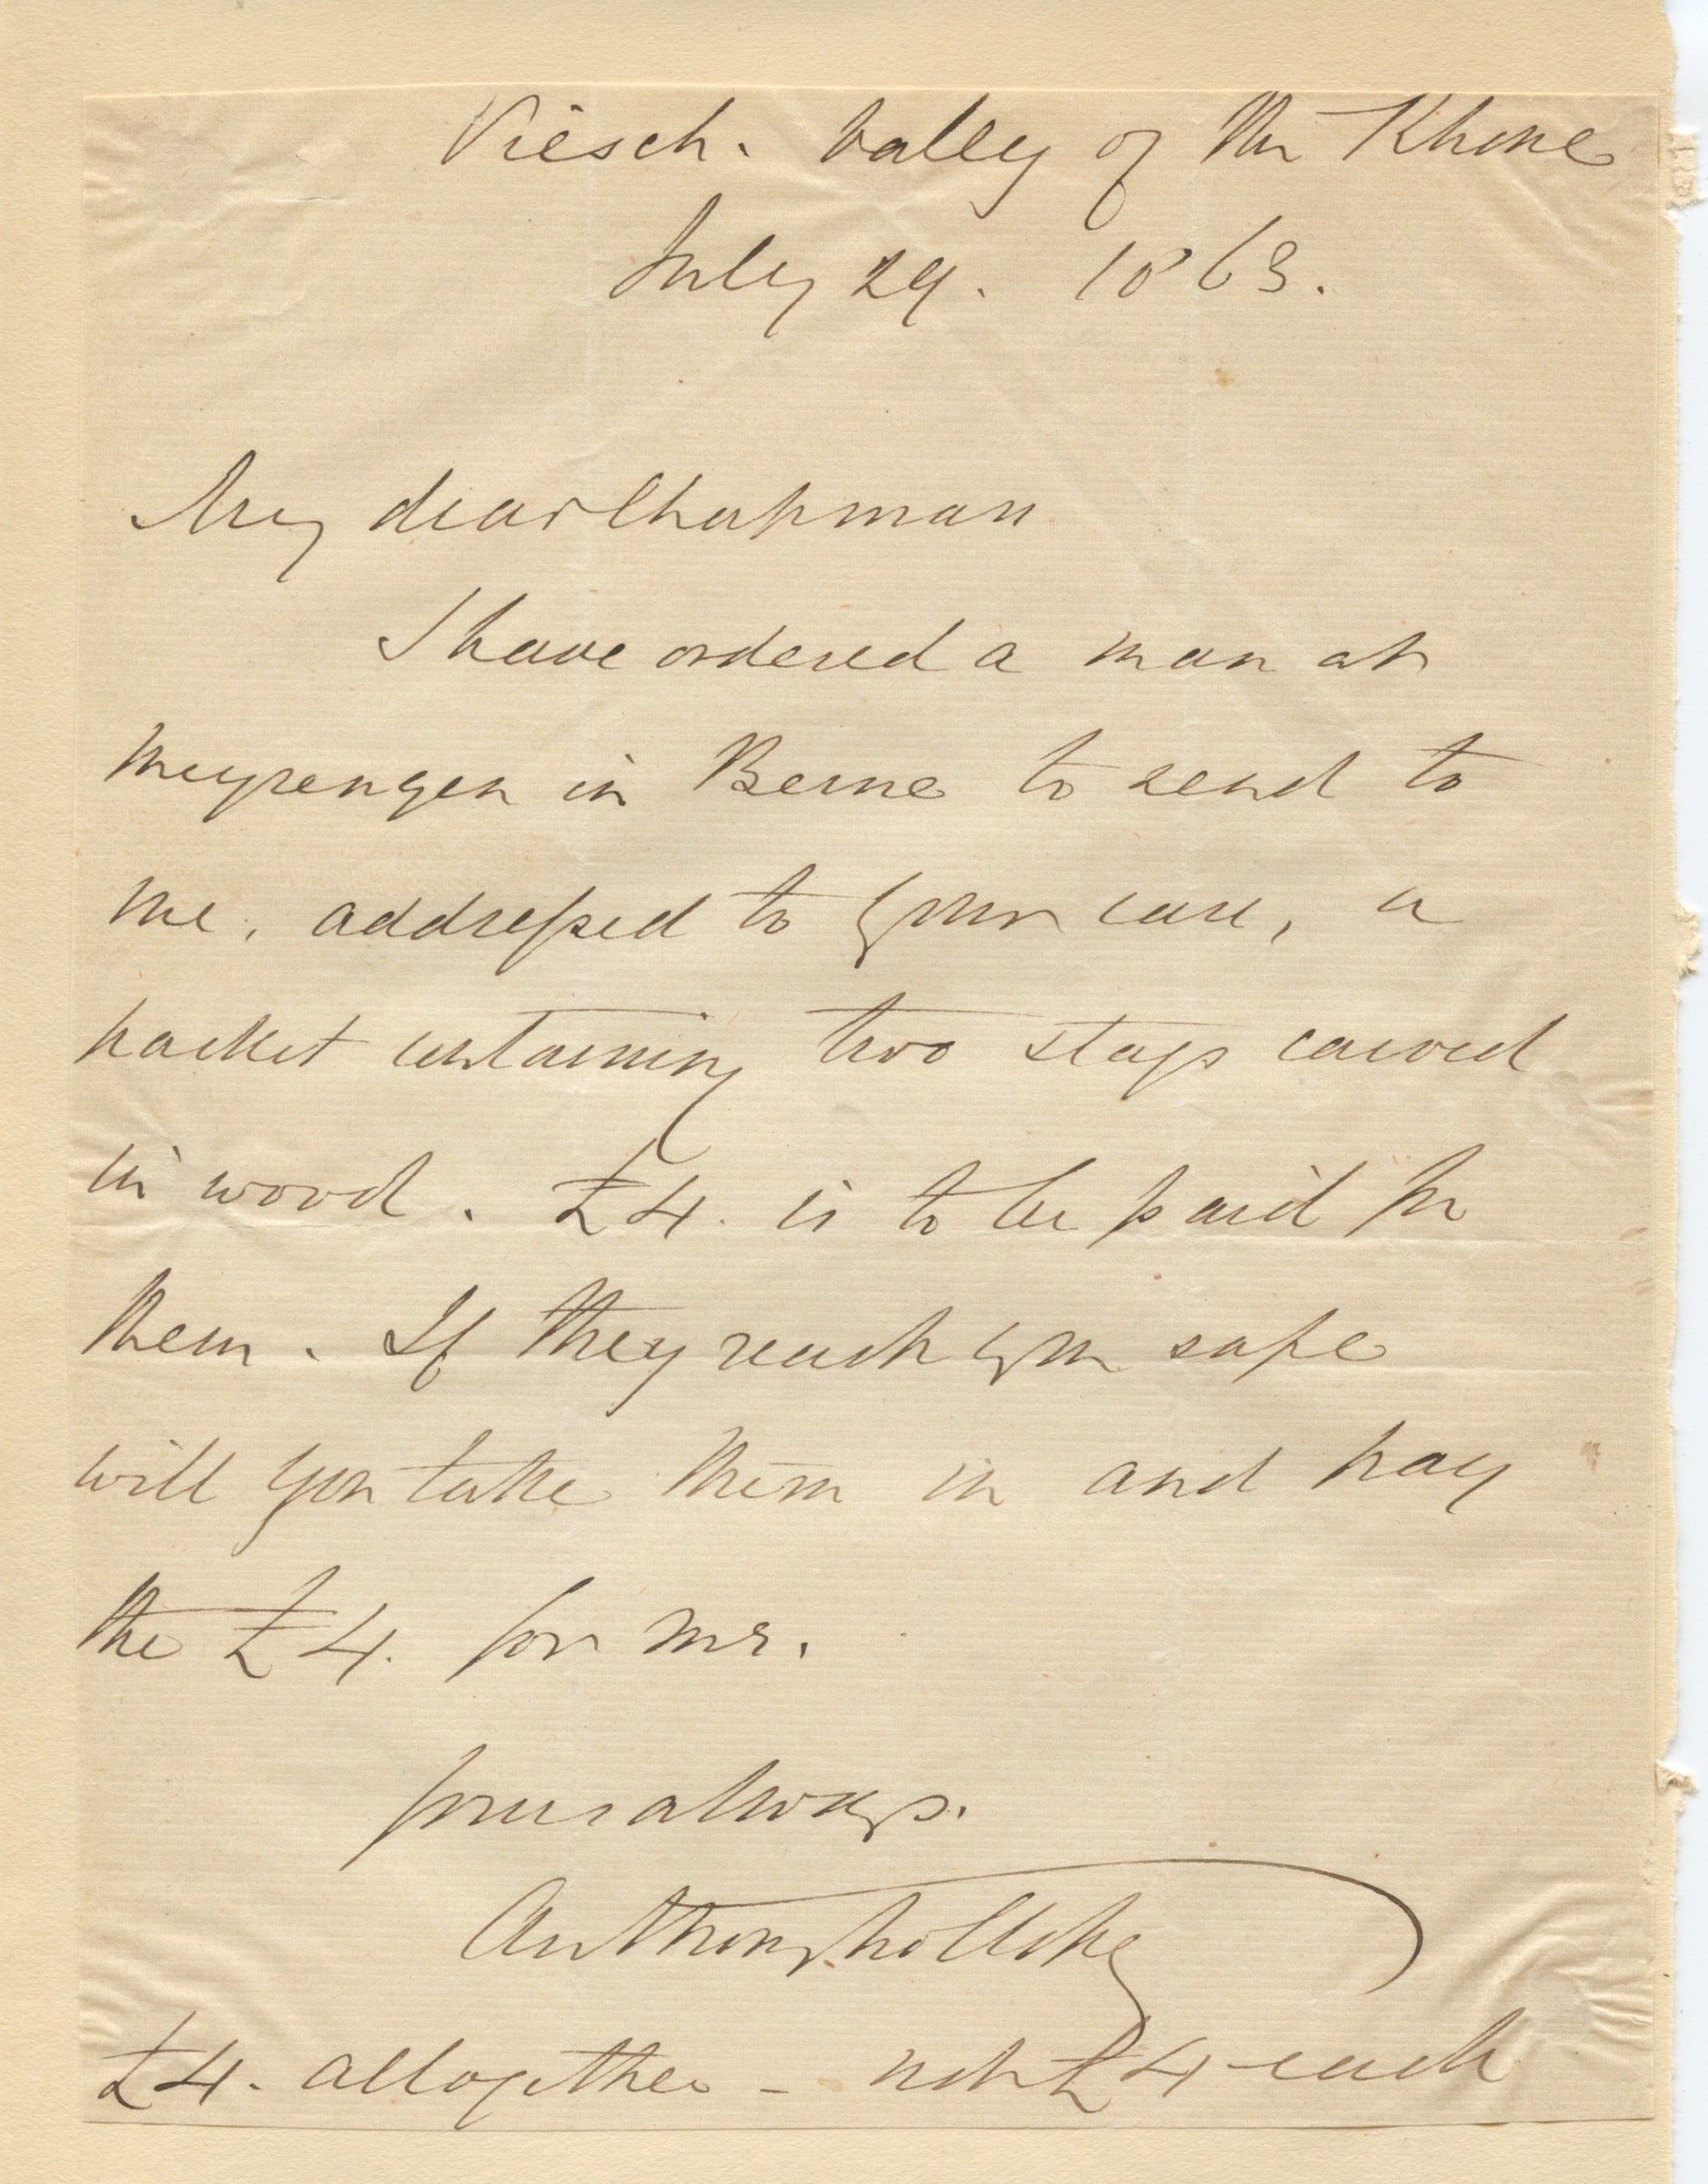 Viesch. Valley of the Rhone
July 29. 1863.
My dear Chapman
I have ordered a man at
Meyrengen in Berne to send to
me, addressed to your care, a
packet containing two stags carved
in wood. £4. is to be paid for
them. If they reach you safe
will you take them in and pay
the £4. for me.
Yours always.
Anthony Trollope
£4. altogether - not £4 each